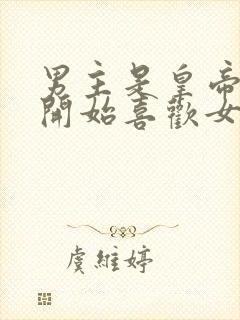 男主是皇帝
開始喜歡女
虞維婷